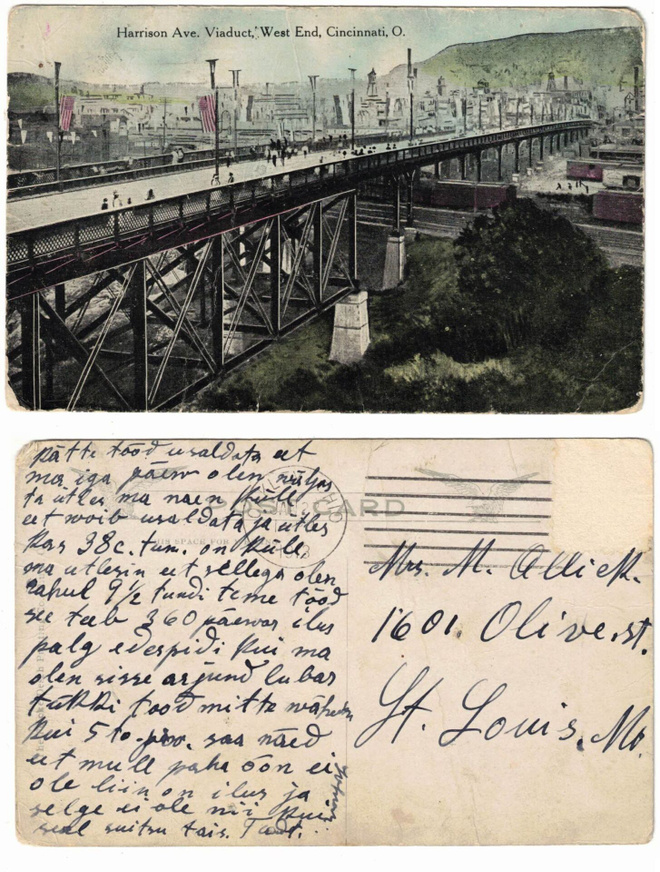 Harrison Ave. Viaduct, West End, Cincinnati, O.
POST CARD
THIS SPACE FOR
pätte tööd usaldata et
ma iga päew olen wäljas
ta ütles ma näen küll
et woib usaldata ja ütles
kas 38c. tun. on küll,
ma ütlesin et sellega olen
rahul 9½ tundi teme tööd
se teeb 360 päewas ilus
palg edespidi kui ma
olen sisse arjund lubas
tükki tööd mitte wähem
kui 510. saa näed
et mull paha õõn ei
ole liin on ilus ja
selge ei ole nii kui
seal suitsu täis. Tadt...
Mrs. M. Allick.
1601. Olive. st.
St. Louis, Mo.